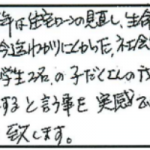 年は住宅ローンの見直し、生命
今迄わかりにくかった、社会
学生2名、の子だくさんの
すると言う事を実感
致します。